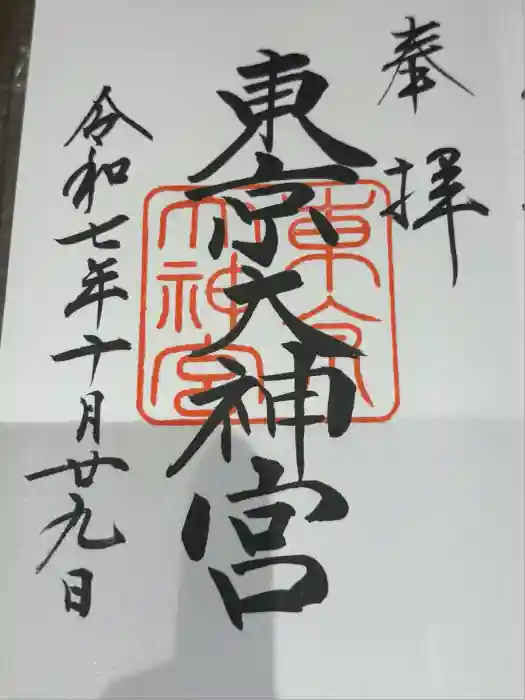 奉拝
東京大神宮
東京大神宮
令和七年十月廿九日